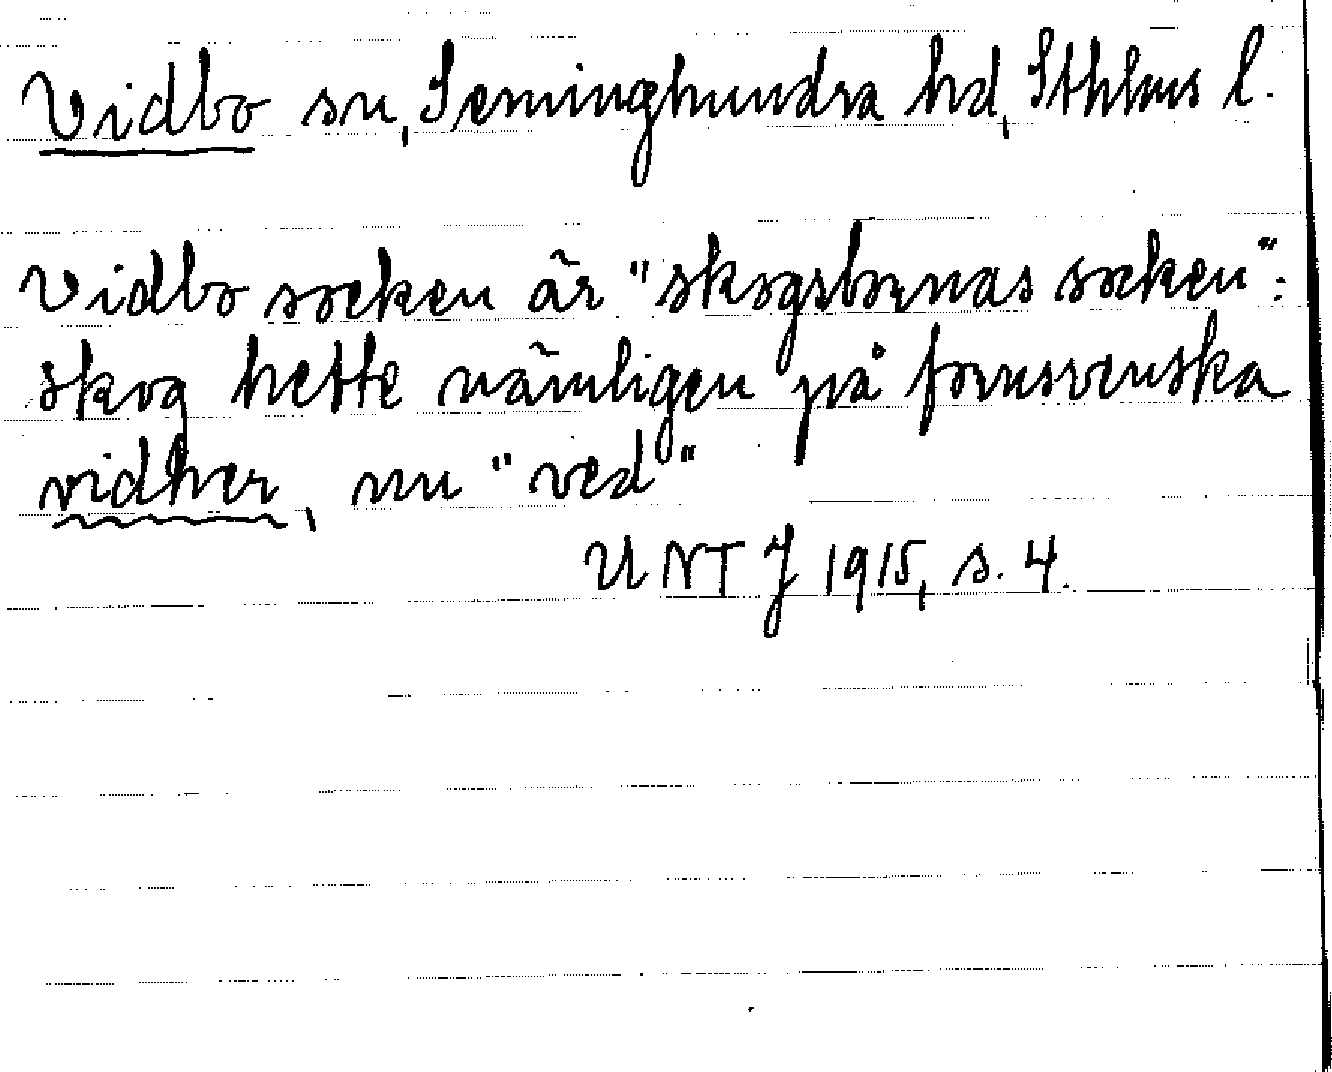 Vidbo sn, Seminghundra hd, Sthlms l.
Vidbo socken är "skogsbornas socken":
skog hette nämligen på fornsvenska
vidher, nu "ved"
UNT J 1915, s. 4.